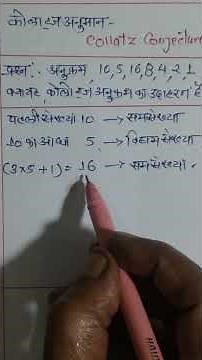 कोलाट्ज अनुमान-
Collatz Conjecture
प्रश्न:- अनुक्रम, 10, 5, 16, 8, 4, 2, 1
क्या यह कोलाट्ज अनुक्रम का उदाहरण है
पहली संख्या 10 → सम संख्या
10 का आधा 5 → विषम संख्या
(3×5+1) = 16 → सम संख्या